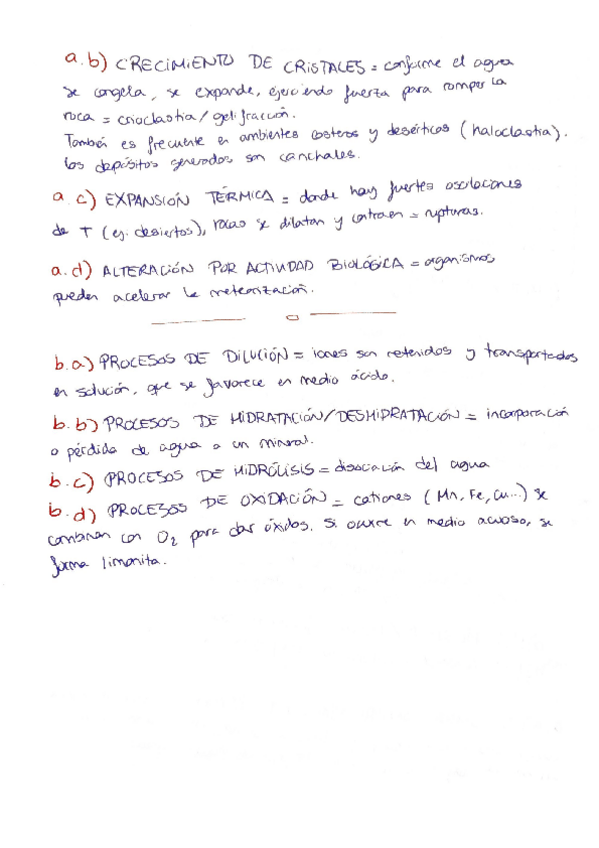 a.b) CRECIMIENTO DE CRISTALES = conforme el agua
se congela, se expande, ejerciendo fuerza para romper la
roca = crioclastia / gelifracción.
También es frecuente en ambientes costeros y desérticos (haloclastia).
los depósitos generados son canchales.
a c) EXPANSIÓN TÉRMICA = donde hay fuertes oscilaciones
de T (ej. desiertos), rocas se dilatan y contraen = rupturas.
a.d) ALTERACIÓN POR ACTIVIDAD BIOLÓGICA = organismos
pueden acelerar la meteorización.
b.a) PROCESOS DE DILUCIÓN = iones son retenidos y transportados
en solución, que se favorece en medio ácido.
b.b) PROCESOS DE HIDRATACIÓN/DESHIDRATACIÓN = incorporación
o pérdida de agua a un mineral.
b.c) PROCESOS DE HIDRÓLISIS = disociación del agua
b.d) PROCESOS DE OXIDACIÓN = cationes (Mn, Fe, Cu...) se
combinan con O2 para dar óxidos. Si ocurre en medio acuoso, se
forma limonita.